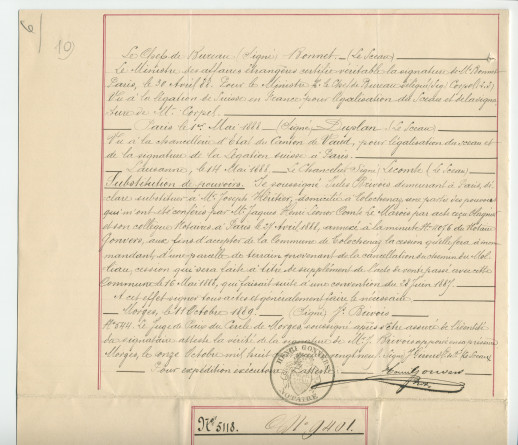 19
Le Chef de Bureau (Signé) Bonnet (Le Sceau)
Le Ministre des affaires étrangères certifie véritable la signature de Mr Bonnet
Paris, le 30 Avril 88. Pour le Ministre Chef de Bureau délégué (sig.) Corpel
Vu à la Légation de Suisse en France pour légalisation du Sceau et de la signa-
ture de Mr Corpel.
Paris le 1er Mai 1888 (Signé) Duplan (Le Sceau)
Vu à la Chancellerie d'Etat du Canton de Vaud, pour légalisation du sceau et
de la signature de la Légation suisse à Paris.
Lausanne, le 14 Mai 1888. Le Chancelier (Signé) Lecomte (Le Sceau)
Substitution de pouvoirs. Je soussigné Jules Brevois demeurant à Paris, dé-
clare substituer à Mr Joseph Héritier, domicilié à Tolochenaz, une partie des pouvoirs
qui m'ont été conférés par Mr Jaques Henri Comte Le Marois par acte reçu
et son collègue Notaires à Paris le 27 Avril 1888, annexé à la minute No 2076 du Notaire
Gonvers, aux fins d'accepter de la Commune de Tolochenaz la cession qu'elle fera à mon
mandant, d'une parcelle de terrain provenant de la cancellation du chemin du Mol-
liau, cession qui sera faite à titre de supplément de l'acte de vente passé avec cette
Commune le 16 Mai 1888, qui faisait suite à une convention du 28 Juin 1887.
A cet effet signer tous actes et généralement faire le nécessaire.
Morges, le 11 Octobre 1889. (Signé) J. Brevois
No 544. Le Juge de Paix du Cercle de Morges soussigné après s'être assuré de l'identité
du signataire atteste la vérité de la signature de Mr J. Brevois apposée en sa présence
Morges, le onze Octobre mil huit cent
Pour expédition exécutoire l'atteste
HENRI GONVERS
NOTAIRE
Henri Gonvers
Not.
No 5118. No 9401.